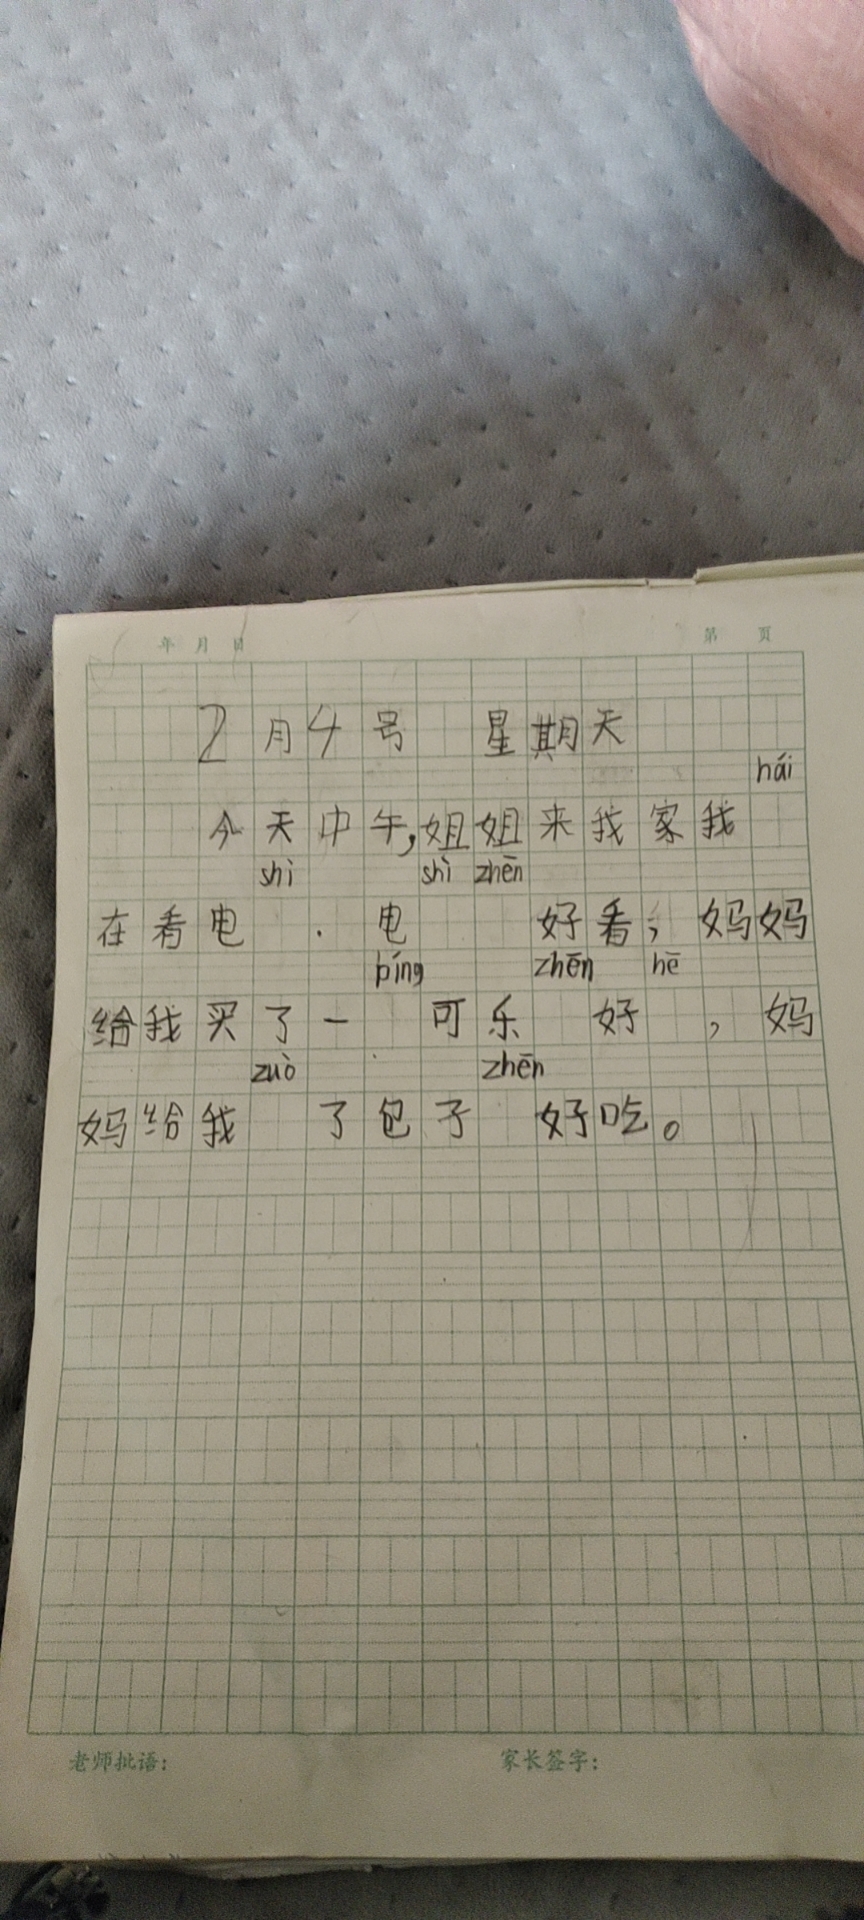 年 月 日 第 页
2月4号 星期天
hái
今天中午,姐姐来我家我
shì shì zhēn
在看电 . 电 好看, 妈妈
píng zhēn hē
给我买了一 可乐 好 , 妈
zuò zhēn
妈给我 了包子 好吃。
老师批语: 家长签字: